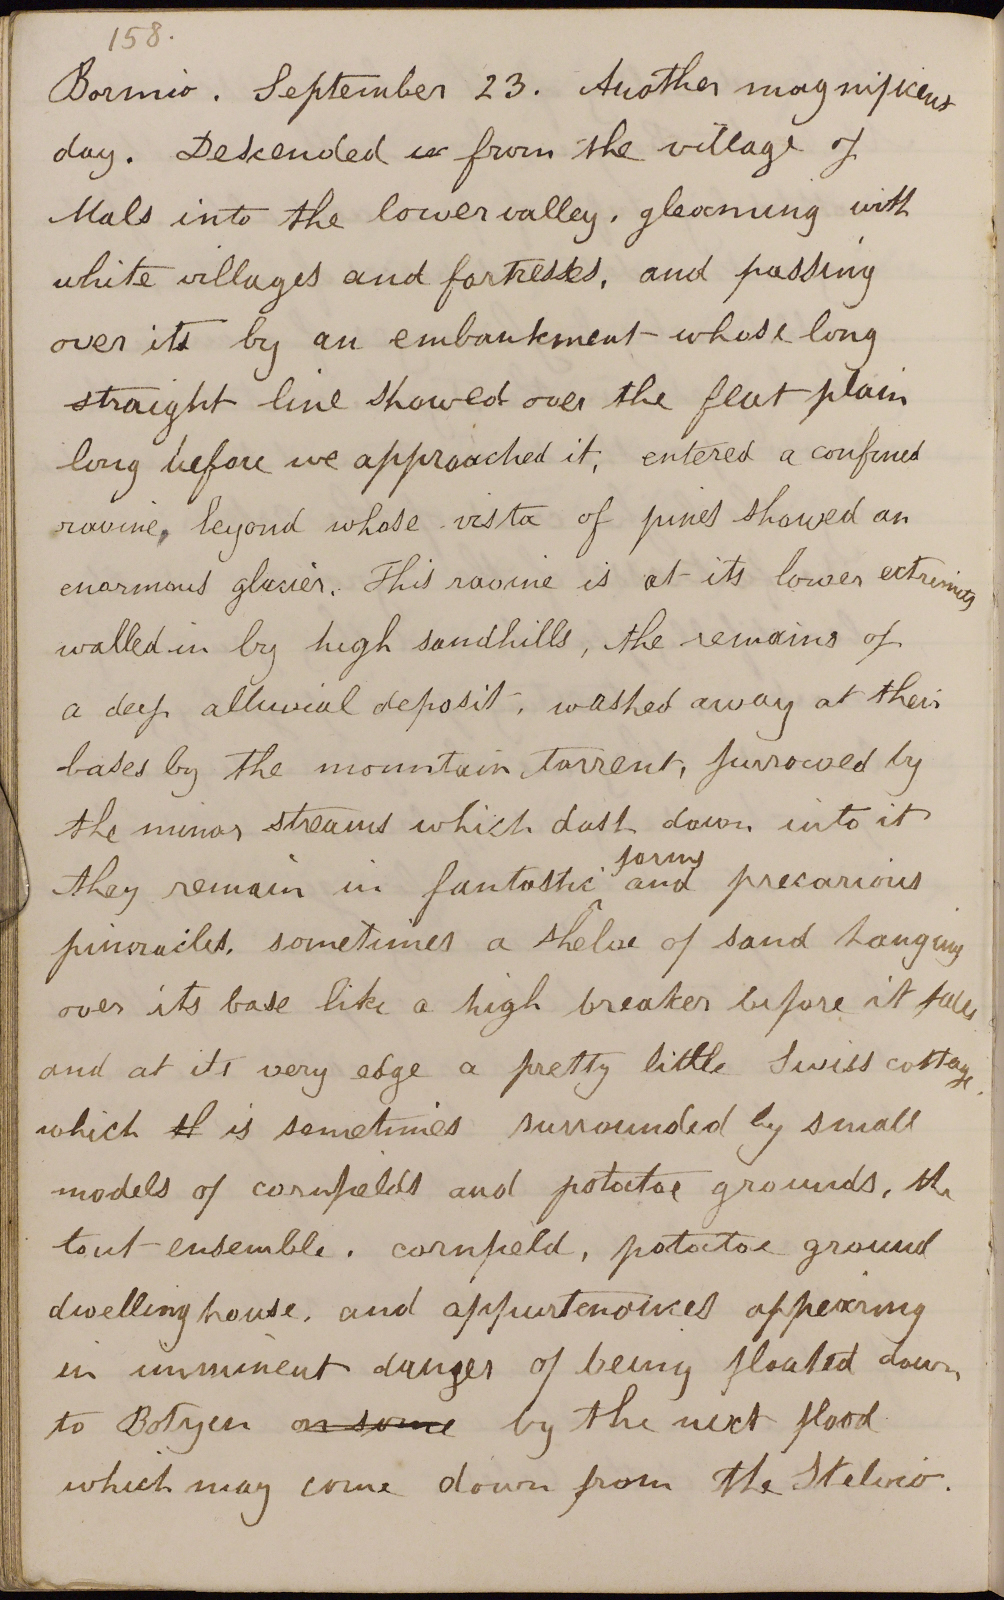 158.
Bormio. September 23. Another magnificent
day. Descended in from the village of
Mals into the lower valley, gleaming with
white villages and fortresses, and passing
over its by an embankment whose long
straight line showed over the flat plain
long before we approached it, entered a confined
ravine, beyond whose vista of pines showed an
enormous glacier. This ravine is at its lower extremity
walled in by high sandhills, the remains of
a deep alluvial deposit, washed away at their
bases by the mountain torrent, furrowed by
the minor streams which dash down into it
forms
they remain in fantastic and precarious
pinnacles, sometimes a shelve of sand hanging
over its base like a high breaker before it falls
and at its very edge a pretty little Swiss cottage.
which it is sometimes surrounded by small
models of cornfields and potatoe grounds, the
tout ensemble. cornfield, potatoe ground
dwelling house, and appurtenances appearing
in imminent danger of being floated down
to Botzen on some by the next flood
which may come down from the Stelvio.